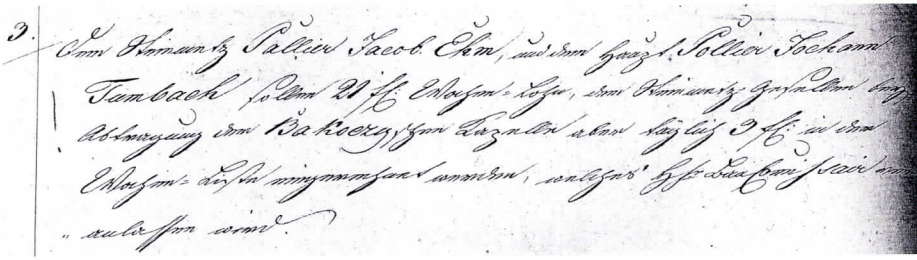 3. Dem Steinmetz Pallier Jacob Ehm, und dem Haupt Pollier Johann
Tambach sollen 21 fl: Wochen-Lohn, den Steinmetz-Gesellen bey
Abtragung der Bakoczyschen Kapelle aber täglich 3 fl: in der
Wochen-Liste eingerechnet werden, welches H: ver
"anlassen wird.